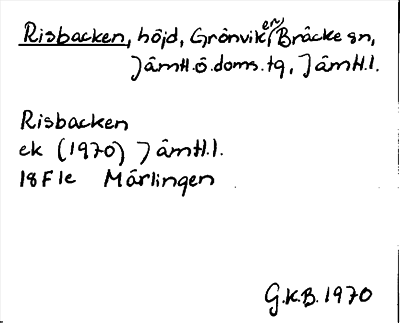 Risbacken, höjd, Grönviken, Bräcke sn,
Jämtl.ö.doms.tg, Jämtl.l.
Risbacken
ek (1970) Jämtl.l.
18F 1e Mårlingen
G.K.B. 1970